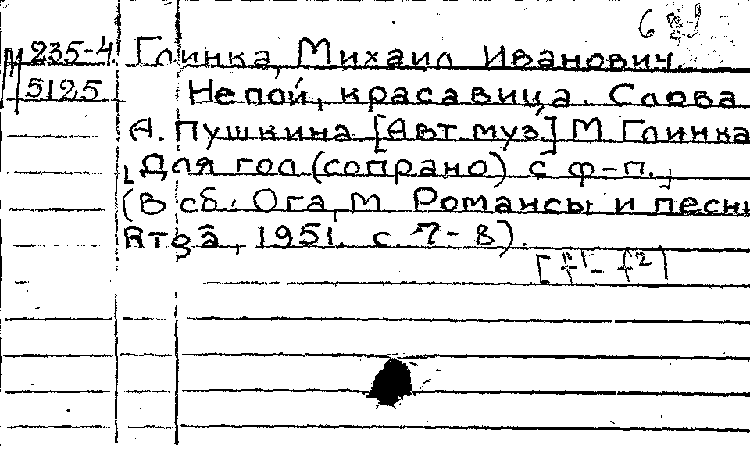 М 235-4 Глинка, Михаил Иванович.
5125 Не пой, красавица. Слова
А. Пушкина [Авт муз.] М Глинка
[Для гол (сопрано) с ф-п.]
(В сб.: Ога, М Романсы и песни
1951. с. 7-8).
[f¹ - f²]